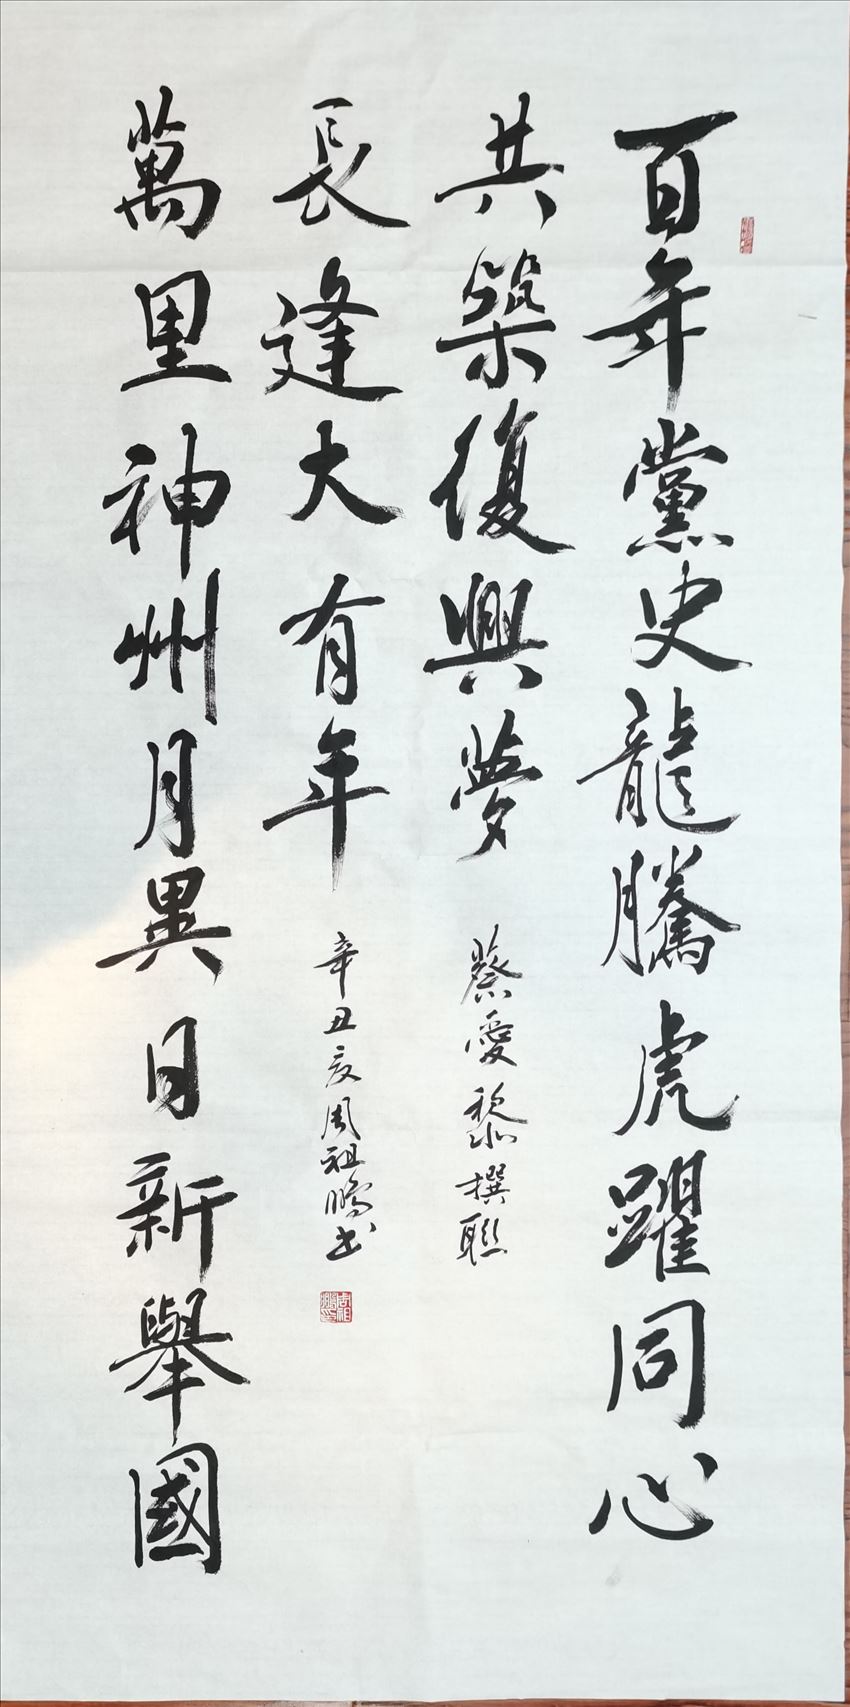 百年黨史龍騰虎躍同心
共築復興夢
蔡愛黎撰聯
萬里神州月異日新舉國
長逢大有年
辛丑夏周祖鵬書
周祖鵬印